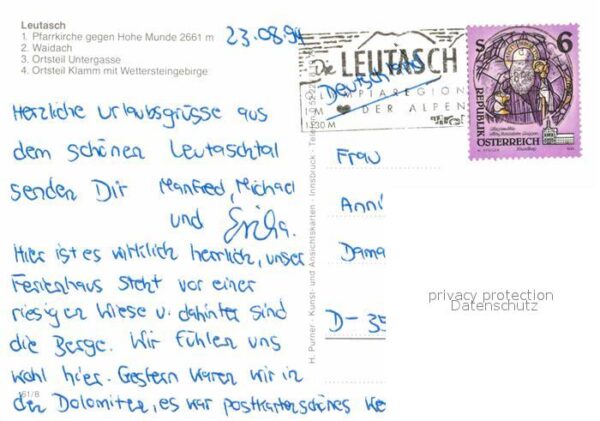 Leutasch
1. Pfarrkirche gegen Hohe Munde 2661 m
2. Waidach
3. Ortsteil Untergasse
4. Ortsteil Klamm mit Wettersteingebirge
23.08.94
Herzliche Urlaubsgrüsse aus
dem schönen Leutaschtal
senden Dir Manfred, Michael
und Erika.
Hier ist es wirklich herrlich, unser
Ferienhaus steht vor einer
riesigen Wiese u. dahinter sind
die Berge. Wir fühlen uns
wohl hier. Gestern waren wir in
den Dolomiten, es war postkartenschönes We
61/8
H. Purner · Kunst- und Ansichtskarten · Innsbruck
Die LEUTASCH
OLYMPIAREGION
IM DER ALPEN
Deutschland
S 6
REPUBLIK
ÖSTERREICH
Frau
Anni
Dama
D-35
privacy protection
Datenschutz